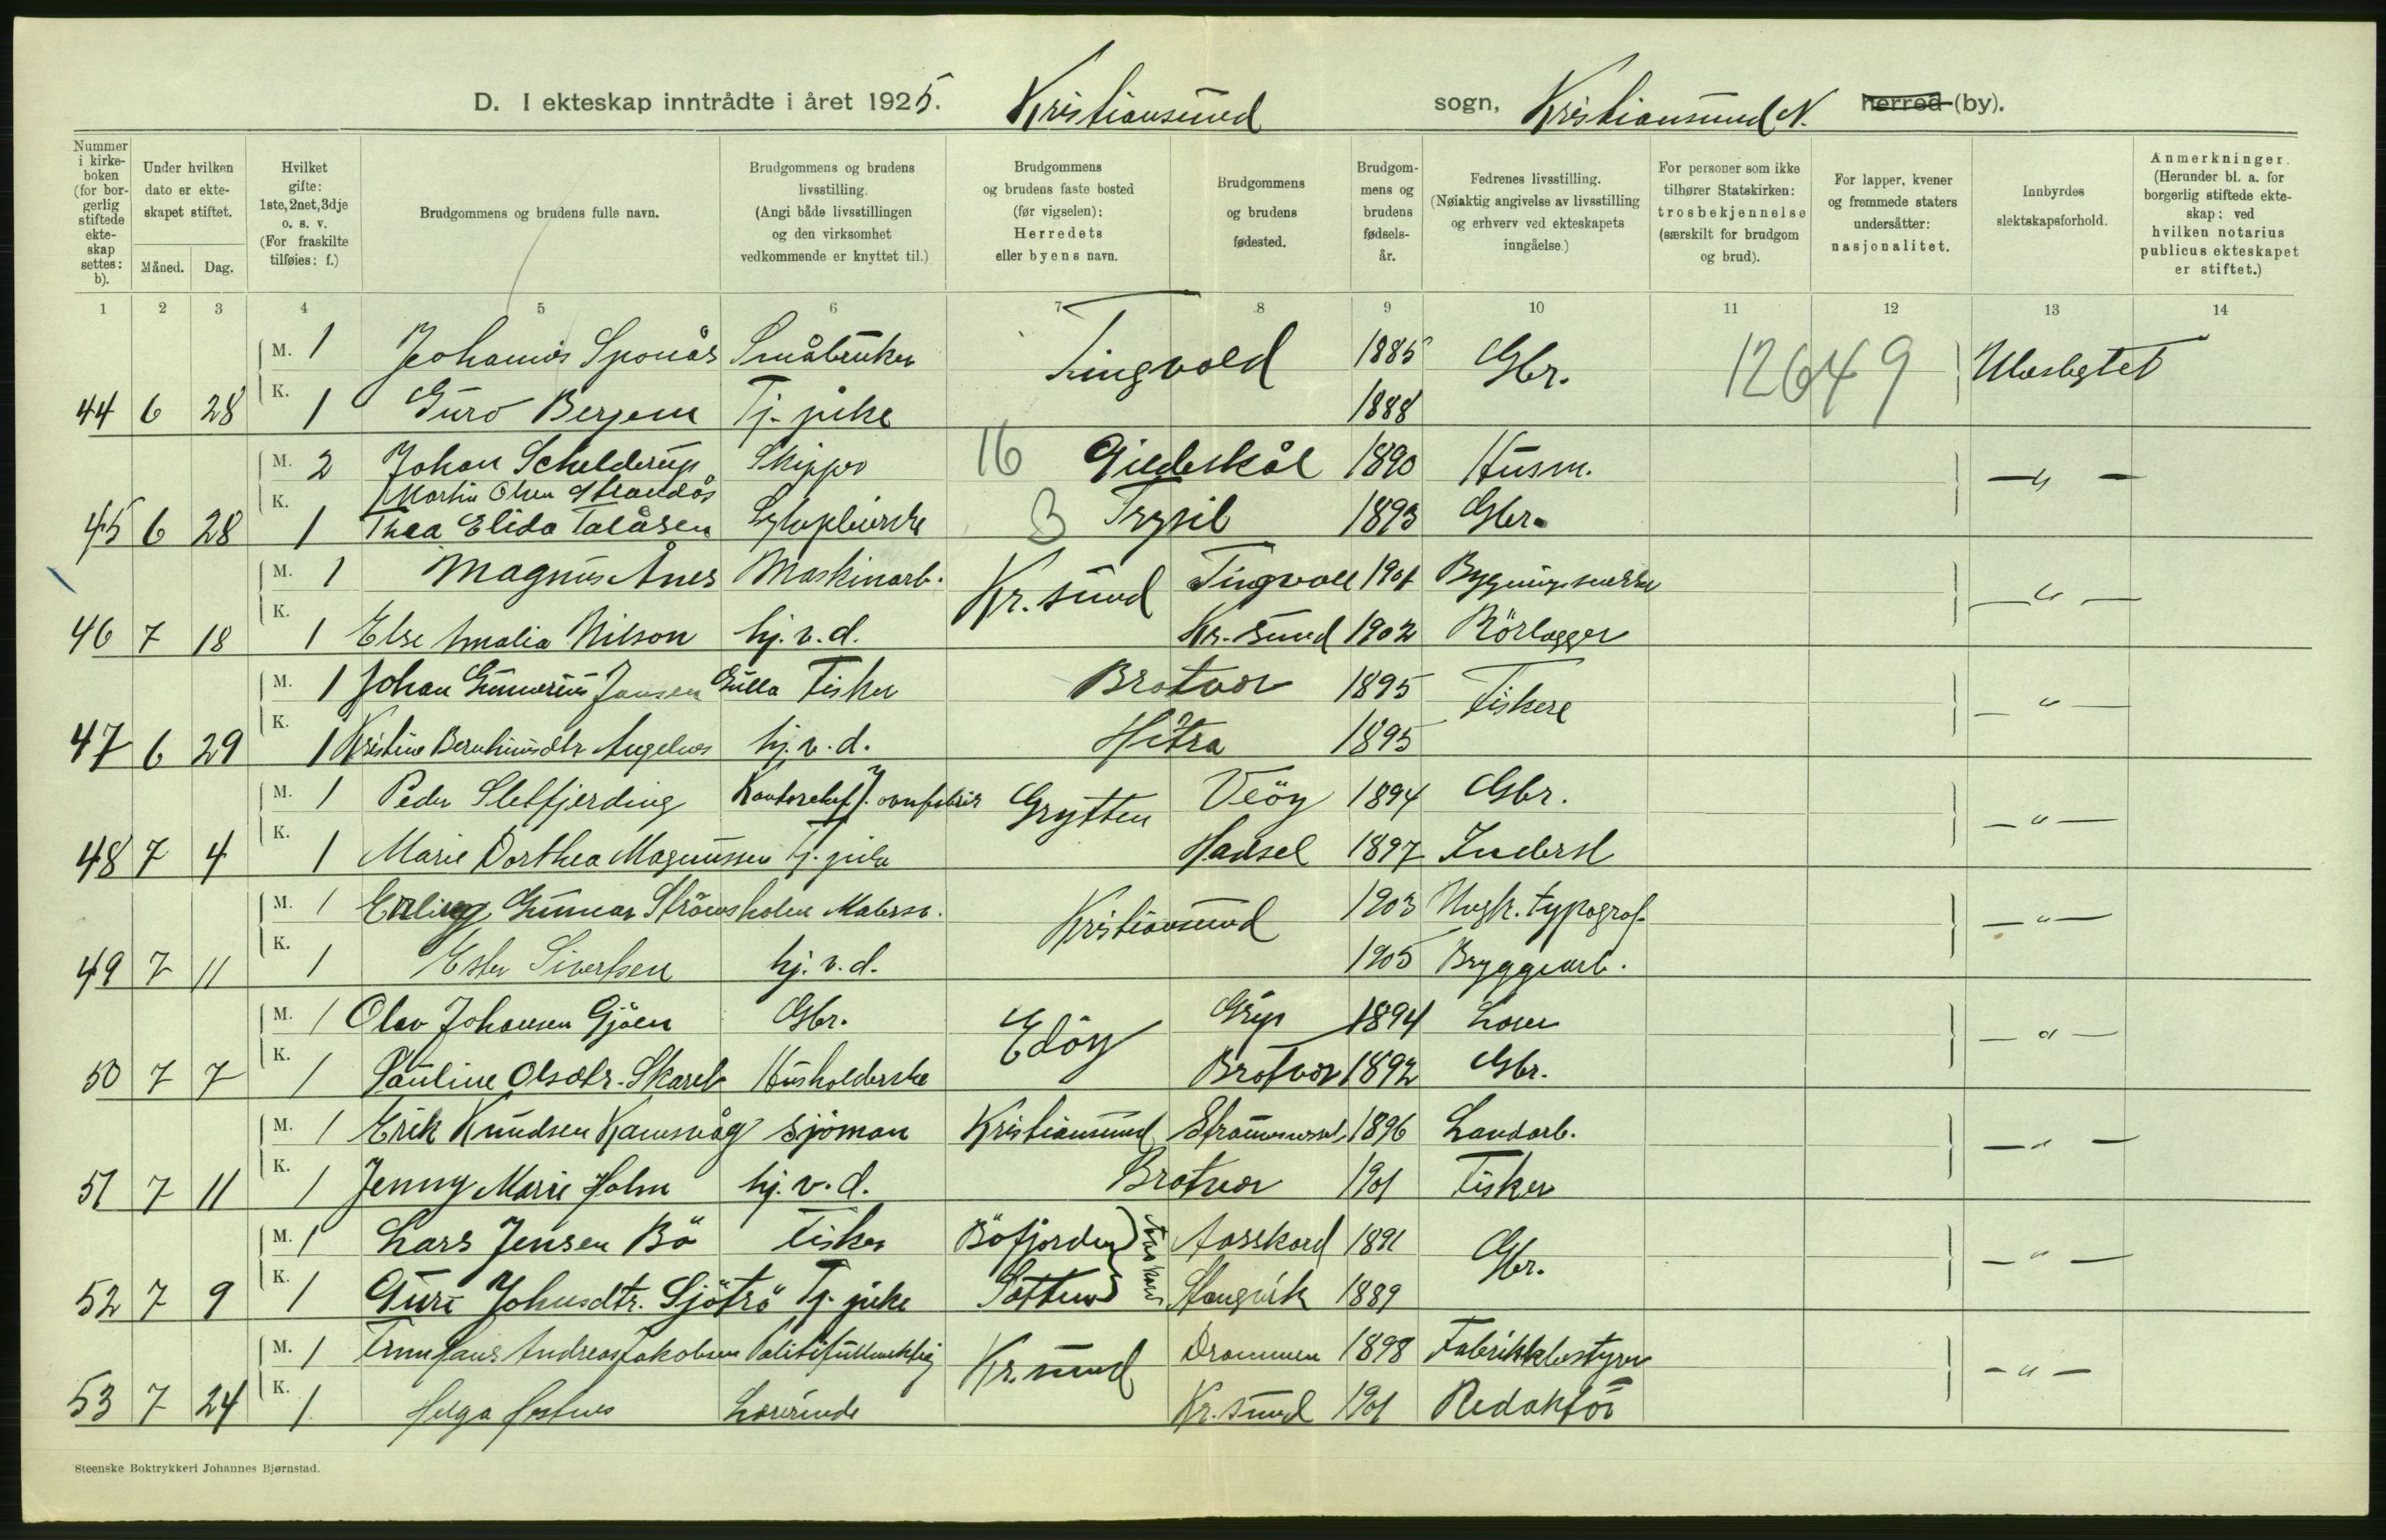 D. I ekteskap inntrådte i året 1925. Kristiansund sogn, Kristiansund N. herred (by).
Nummer i kirkeboken (for borgerlig stiftede ekteskap settes: b).
Under hvilken dato er ekteskapet stiftet.
Måned. Dag.
Hvilket gifte: 1ste, 2net, 3dje o. s. v. (For fraskilte tilføies: f.)
Brudgommens og brudens fulle navn.
Brudgommens og brudens livsstilling. (Angi både livsstillingen og den virksomhet vedkommende er knyttet til.)
Brudgommens og brudens faste bosted (før vigselen): Herredets eller byens navn.
Brudgommens og brudens fødested.
Brudgommens og brudens fødselsår.
Fedrenes livsstilling. (Nøiaktig angivelse av livsstilling og erhverv ved ekteskapets inngåelse.)
For personer som ikke tilhører Statskirken: trosbekjennelse (særskilt for brudgom og brud).
For lapper, kvener og fremmede staters undersåtter: nasjonalitet.
Innbyrdes slektskapsforhold.
Anmerkninger. (Herunder bl. a. for borgerlig stiftede ekteskap: ved hvilken notarius publicus ekteskapet er stiftet.)
1 2 3 4 5 6 7 8 9 10 11 12 13 14
M. 1 Johannes Sponås Småbruker Tingvold 1885 Gbr. 12649 Ubeslegtet
44 6 28 K. 1 Guro Bergem Tj. pike 1888
M. 2 Johan Schelderup Skipper 16 Gildeskål 1890 Husm. — " —
Martin Olsen
45 6 28 K. 1 Thea Elida Talåsen Sykepleierske 3 Trysil 1893 Gbr.
M. 1 Magnus Ånes Maskinarb. Kr.sund Tingvoll 1901 — " —
46 7 18 K. 1 Else Amalia Nilson hj. v. d. Kr. sund 1902 Rörlegger
M. 1 Johan Gunerius Jansen Gulla Fisker Brattvær 1895 Fiskere — " —
47 6 29 K. 1 Kristine hj. v. d. Hitra 1895
M. 1 Peder Sletfjerding Kontorchef Grytten Veöy 1894 Gbr. — " —
48 7 4 K. 1 Marie Dorthea Magnussen Tj. pike Hadsel 1897 Inderst
M. 1 Erling Gunnar Strömsholm Malersv. Kristiansund 1903 Ugft. typograf. — " —
49 7 11 K. 1 Ester Sivertsen hj. v. d. 1905 Bryggearb.
M. 1 Olav Johansen Gjöen Gbr. Edöy Grip 1894 Loser — " —
50 7 7 K. 1 Pauline Olsdtr. Husholderske Brattvær 1892 Gbr.
M. 1 Erik Knudsen Ramsvåg Sjöman Kristiansund 1896 Landarb. — " —
51 7 11 K. 1 Jenny Marie Holm hj. v. d. Brattvær 1901 Fisker
M. 1 Lars Jensen Bö Fisker Böfjorden Aasskard 1891 Gbr. — " —
52 7 9 K. 1 Guri Johnsdtr. Sjöttrö Tj. pike Stangvik 1889
M. 1 Hans Andreas Jakobsen Politifullmektig Kr.sund Drammen 1898 Fabrikkbestyrer — " —
53 7 24 K. 1 Helga Lærerinde Kr. sund 1901 Redaktör
Steenske Boktrykkeri Johannes Bjørnstad.